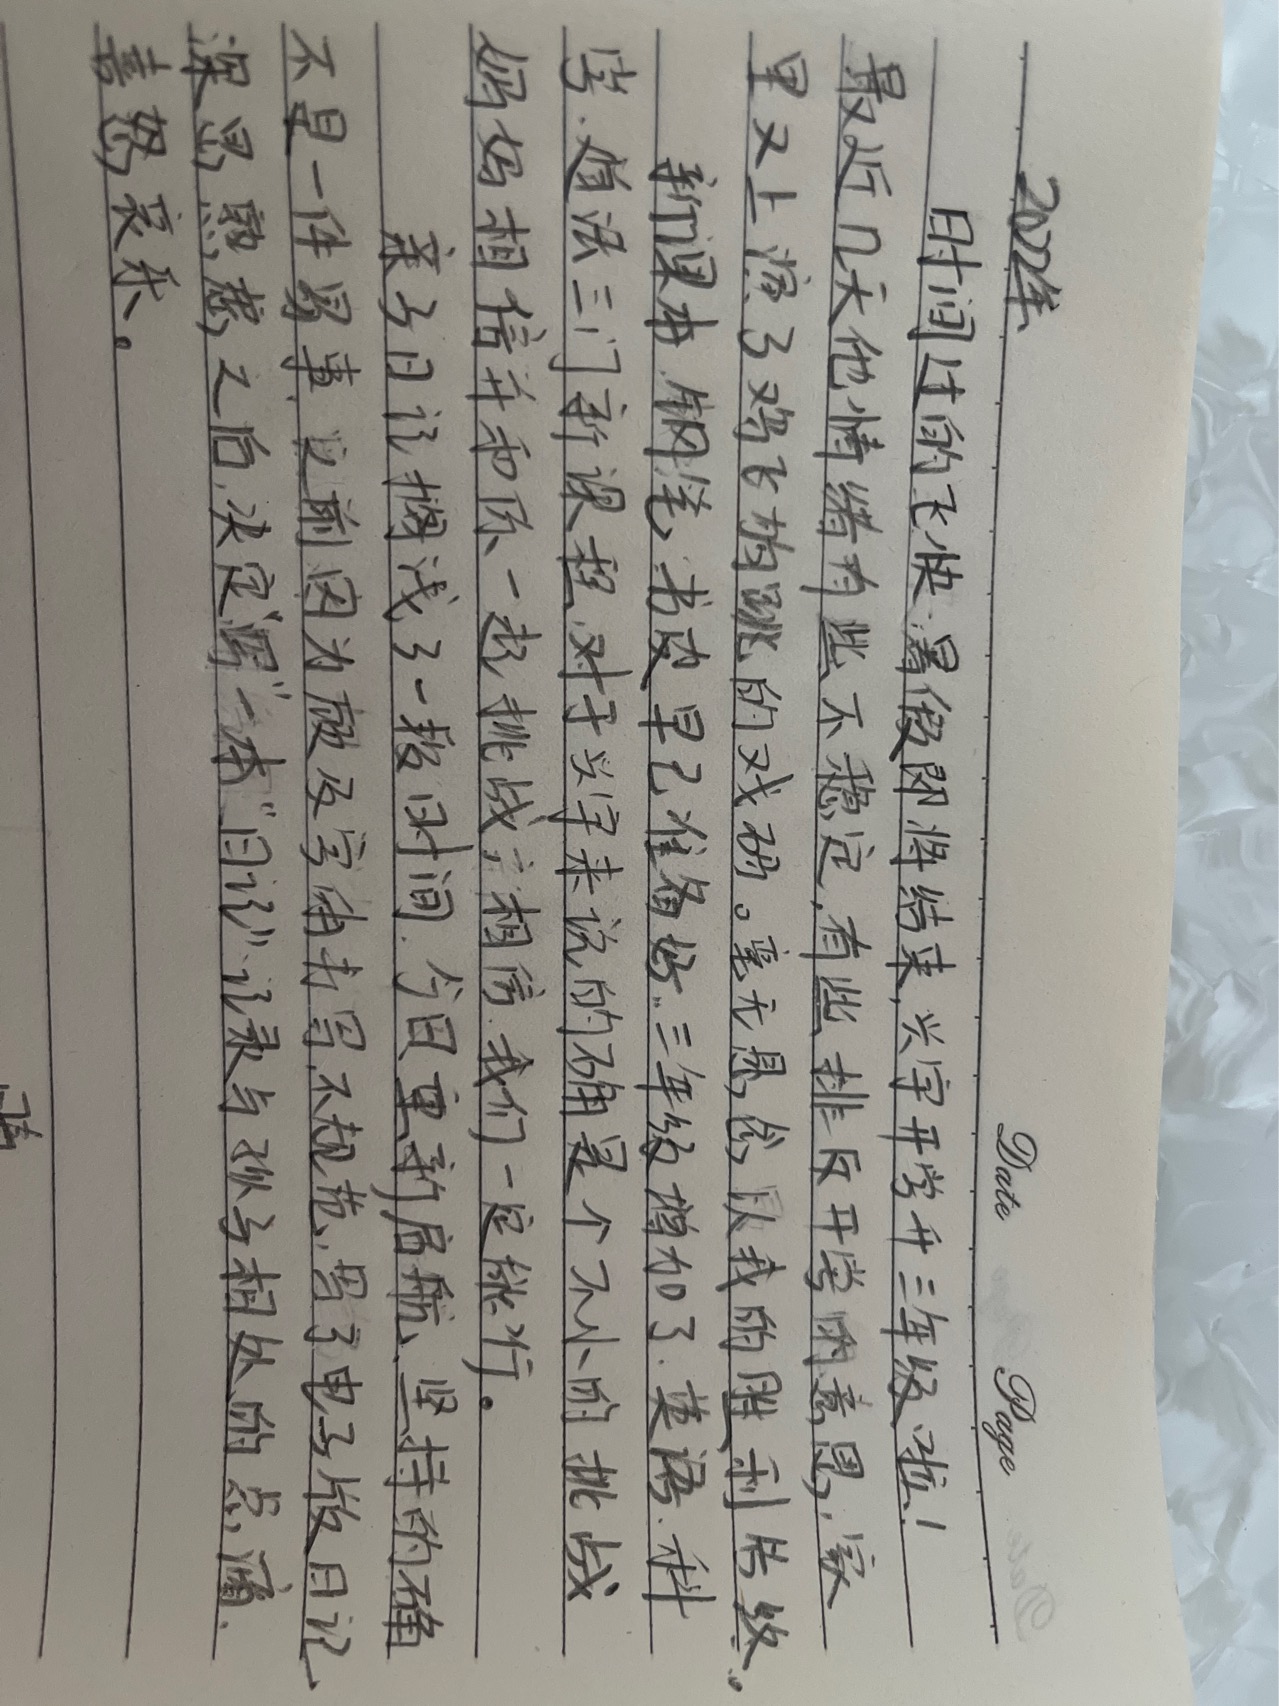 Date Page
2022年
时间过的飞快,暑假即将结束,兴宇开学升三年级啦!
最近几天他情绪有些不稳定,有些排斥开学的意思,家
里又上演了鸡飞狗跳的戏码。毫无悬念,以我的胜利告终。
新课本.钢笔,书皮早已准备好.三年级增加了.英语.科
学.道法三门新课程,对于兴宇来说的确是个不小的挑战
妈妈相信并和你一起挑战,相信.我们一定能行。
亲子日记搁浅了一段时间.今日重新启航、坚持的确
不是一件易事,之前因为顾及字体书写不规范,写了电子版日记、
深思熟虑之后,决定"写"一本"日记"记录与孩子相处的点滴.
喜怒哀乐。